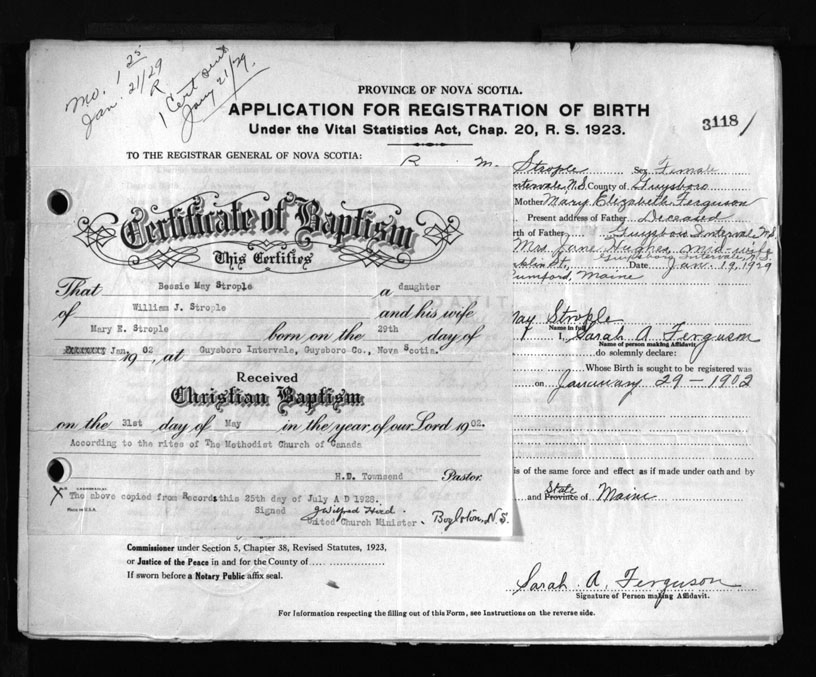 Mo. 1 25
Jan. 21/29
R
1 Cert sent
Jany 21/29.
PROVINCE OF NOVA SCOTIA.
APPLICATION FOR REGISTRATION OF BIRTH
Under the Vital Statistics Act, Chap. 20, R. S. 1923.
3118
TO THE REGISTRAR GENERAL OF NOVA SCOTIA:
R M. Strople Sex Female
Intervale, N.S. County of Guysboro
Mother Mary Elizabeth Ferguson
Present address of Father Deceased
rth of Father Guysboro Intervale N.S.
Mrs. Jane Hughes, mid-wife
Guysboro Intervale, N.S.
klin St, Date Jan. 19, 1929
Rumford, Maine
Certificate of Baptism
This Certifies
That Bessie May Strople a daughter
of William J. Strople and his wife
Mary E. Strople born on the 29th day of
Jan. 1902, at Guysboro Intervale, Guysboro Co., Nova Scotia.
Received
Christian Baptism
on the 31st day of May in the year of our Lord 1902.
According to the rites of The Methodist Church of Canada
H.D. Townsend Pastor.
X The above copied from Records this 25th day of July A D 1928.
Made in U.S.A.
Signed J Wilfred Hird.
United Church Minister. Boylston, N.S.
May Strople
Name in full
I, Sarah A Ferguson
Name of person making Affidavit.
do solemnly declare:
Whose Birth is sought to be registered was
on January 29-1902
is of the same force and effect as if made under oath and by
and State Province of Maine
Commissioner under Section 5, Chapter 38, Revised Statutes, 1923,
or Justice of the Peace in and for the County of
If sworn before a Notary Public affix seal.
Sarah. A. Ferguson
Signature of Person making Affidavit.
For Information respecting the filling out of this Form, see Instructions on the reverse side.